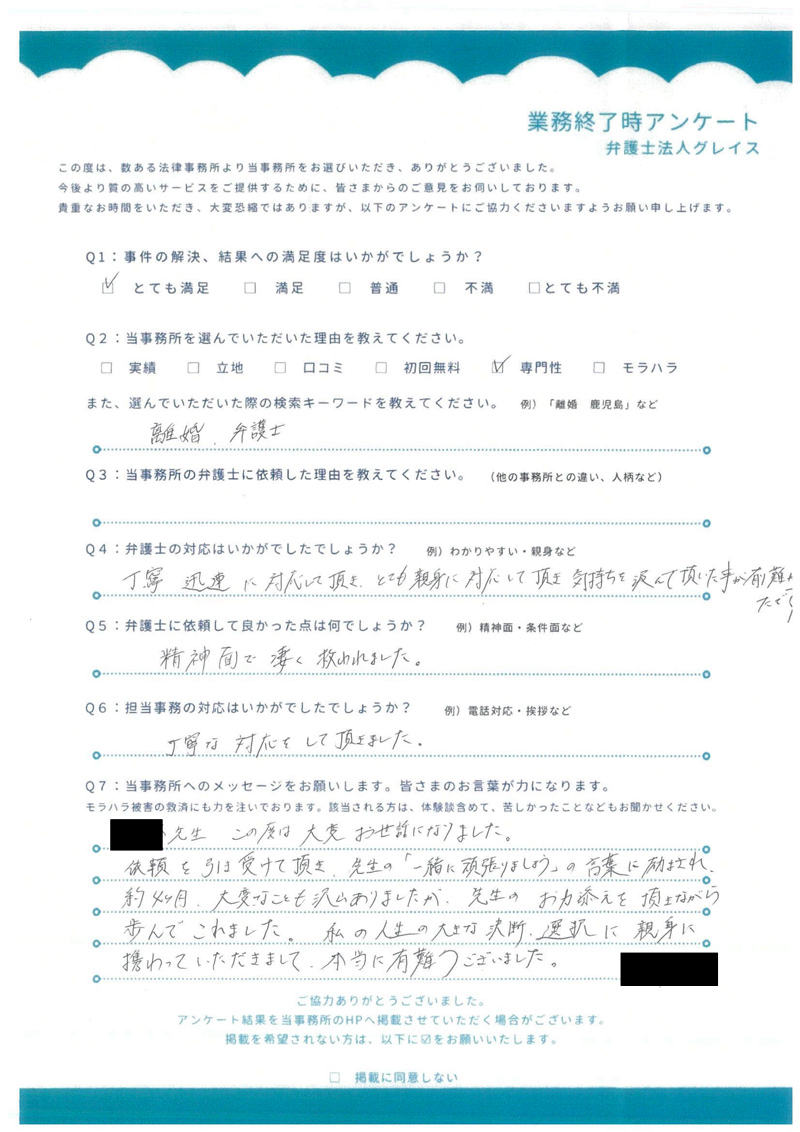 業務終了時アンケート
弁護士法人グレイス
この度は、数ある法律事務所より当事務所をお選びいただき、ありがとうございました。
今後より質の高いサービスをご提供するために、皆さまからのご意見をお伺いしております。
貴重なお時間をいただき、大変恐縮ではありますが、以下のアンケートにご協力くださいますようお願い申し上げます。
Q1：事件の解決、結果への満足度はいかがでしょうか？
☑ とても満足 □ 満足 □ 普通 □ 不満 □とても不満
Q2：当事務所を選んでいただいた理由を教えてください。
□ 実績 □ 立地 □ 口コミ □ 初回無料 ☑ 専門性 □ モラハラ
また、選んでいただいた際の検索キーワードを教えてください。 例）「離婚 鹿児島」など
離婚、弁護士
Q3：当事務所の弁護士に依頼した理由を教えてください。 （他の事務所との違い、人柄など）
Q4：弁護士の対応はいかがでしたでしょうか？ 例）わかりやすい・親身など
丁寧 迅速 に 対応して頂き、とても親身に 対応 して 頂き 気持ちを 汲んで 頂いた事が有難
たです
Q5：弁護士に依頼して良かった点は何でしょうか？ 例）精神面・条件面など
精神面で 凄く 救われました。
Q6：担当事務の対応はいかがでしたでしょうか？ 例）電話対応・挨拶など
丁寧な 対応を して 頂きました。
Q7：当事務所へのメッセージをお願いします。皆さまのお言葉が力になります。
モラハラ被害の救済にも力を注いでおります。該当される方は、体験談含めて、苦しかったことなどもお聞かせください。
先生 この度は 大変 お世話になりました。
依頼 を 引き 受けて 頂き、先生の「一緒に頑張りましょう」の 言葉 に 励まされ、
約4ヶ月、大変なことも 沢山ありましたが、先生の お力添えを 頂きながら
歩んで これました。 私の 人生の 大きな 決断、選択に 親身に
携わって いただきまして、本当に 有難うございました。
ご協力ありがとうございました。
アンケート結果を当事務所のHPへ掲載させていただく場合がございます。
掲載を希望されない方は、以下に☑をお願いいたします。
□ 掲載に同意しない